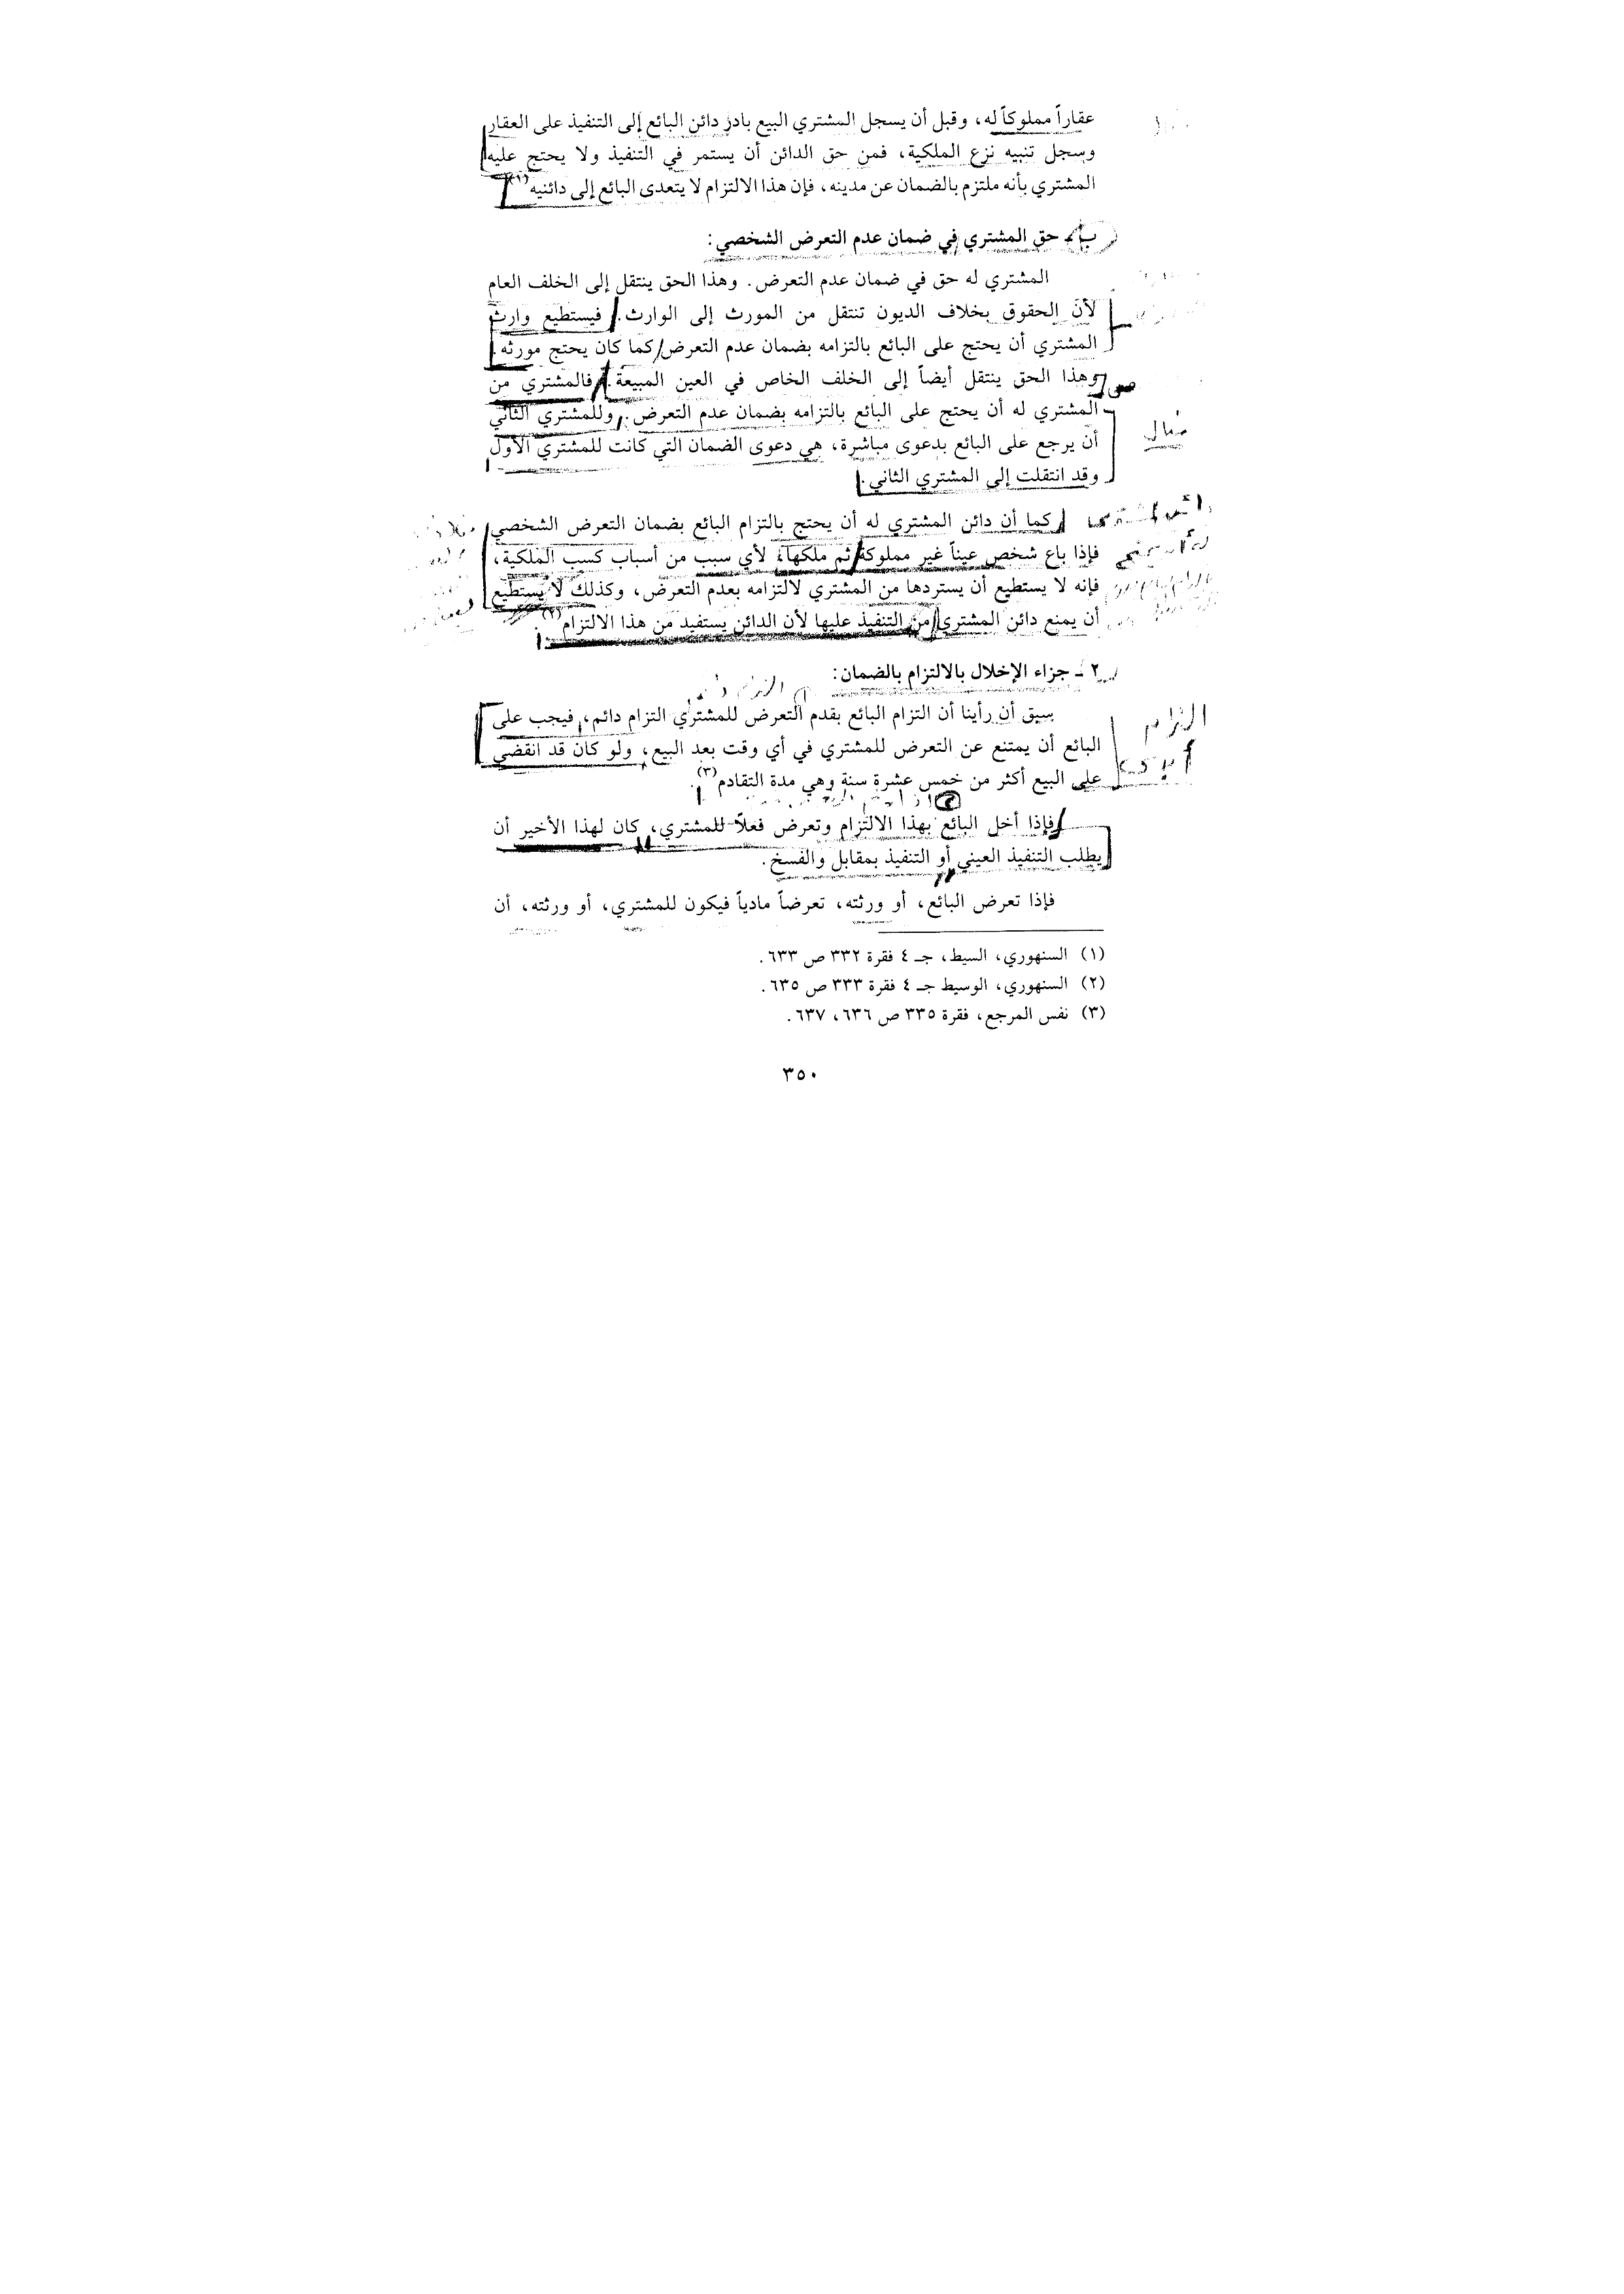 عقاراً مملوكاً له، وقبل أن يسجل المشتري البيع بادر دائن البائع إلى التنفيذ على العقار
وسجل تنبيه نزع الملكية، فمن حق الدائن أن يستمر في التنفيذ ولا يحتج عليه
المشتري بأنه ملتزم بالضمان عن مدينه، فإن هذا الالتزام لا يتعدى البائع إلى دائنيه(١)
ب - حق المشتري في ضمان عدم التعرض الشخصي:
المشتري له حق في ضمان عدم التعرض. وهذا الحق ينتقل إلى الخلف العام
لأن الحقوق بخلاف الديون تنتقل من المورث إلى الوارث. فيستطيع وارث
المشتري أن يحتج على البائع بالتزامه بضمان عدم التعرض كما كان يحتج مورثه.
وهذا الحق ينتقل أيضاً إلى الخلف الخاص في العين المبيعة. فالمشتري من
المشتري له أن يحتج على البائع بالتزامه بضمان عدم التعرض. وللمشتري الثاني
مثال
أن يرجع على البائع بدعوى مباشرة، هي دعوى الضمان التي كانت للمشتري الأول
وقد انتقلت إلى المشتري الثاني.
كما أن دائن المشتري له أن يحتج بالتزام البائع بضمان التعرض الشخصي
فإذا باع شخص عيناً غير مملوكة ثم ملكها، لأي سبب من أسباب كسب الملكية،
فإنه لا يستطيع أن يستردها من المشتري لالتزامه بعدم التعرض، وكذلك لا يستطيع
أن يمنع دائن المشتري من التنفيذ عليها لأن الدائن يستفيد من هذا الالتزام(٢).
٢ - جزاء الإخلال بالالتزام بالضمان:
سبق أن رأينا أن التزام البائع بقدم التعرض للمشتري التزام دائم، فيجب على
التزام
البائع أن يمتنع عن التعرض للمشتري في أي وقت بعد البيع، ولو كان قد انقضى
على البيع أكثر من خمس عشرة سنة وهي مدة التقادم(٣).
فإذا أخل البائع بهذا الالتزام وتعرض فعلاً للمشتري، كان لهذا الأخير أن
يطلب التنفيذ العيني أو التنفيذ بمقابل والفسخ.
فإذا تعرض البائع، أو ورثته، تعرضاً مادياً فيكون للمشتري، أو ورثته، أن
(١) السنهوري، السيط، جـ ٤ فقرة ٣٣٢ ص ٦٣٣.
(٢) السنهوري، الوسيط جـ ٤ فقرة ٣٣٣ ص ٦٣٥.
(٣) نفس المرجع، فقرة ٣٣٥ ص ٦٣٦، ٦٣٧.
٣٥٠